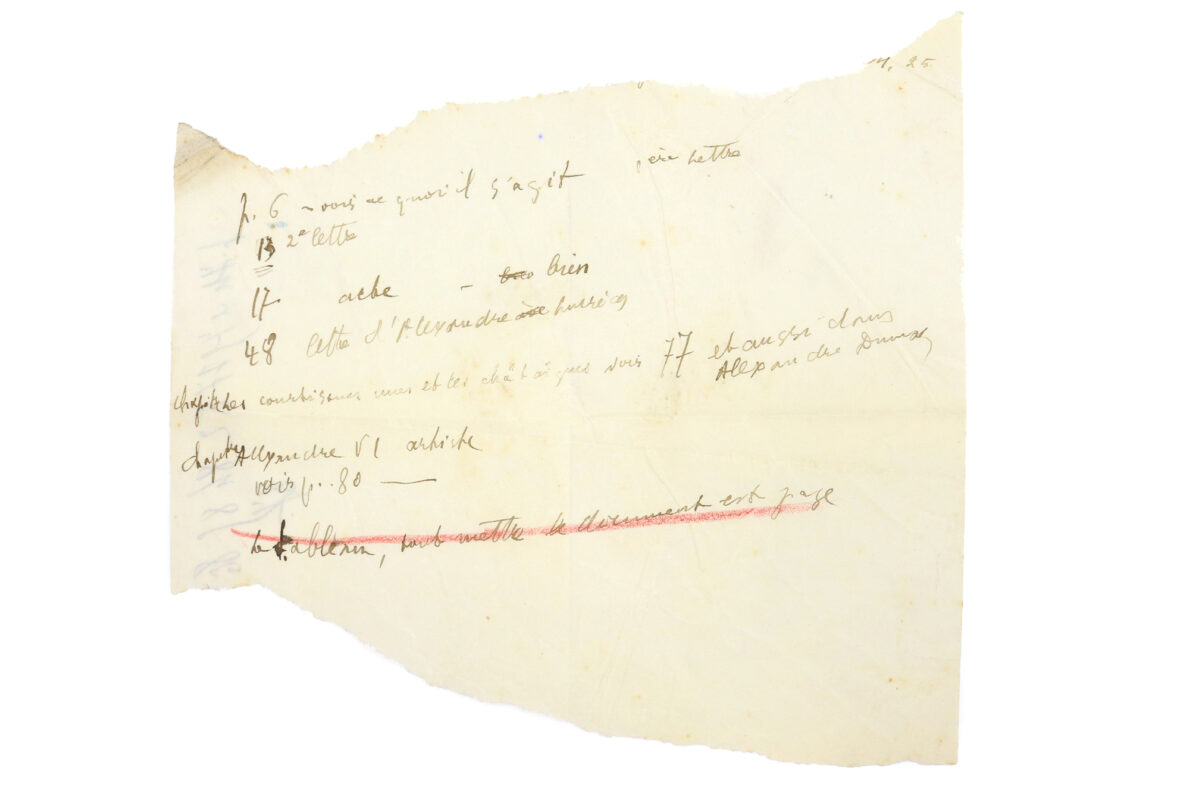 25
p. 6 - voir de quoi il s'agit 1ère lettre
13 2e lettre
17 acte - bien
48 lettre d'Alexandre
chapitre les courtisanes nues et les châtaignes voir 77 et aussi dans
Alexandre Dumas
chapitre Alexandre VI artiste
voir p. 80 —
le tableau, dont mettre le document est page